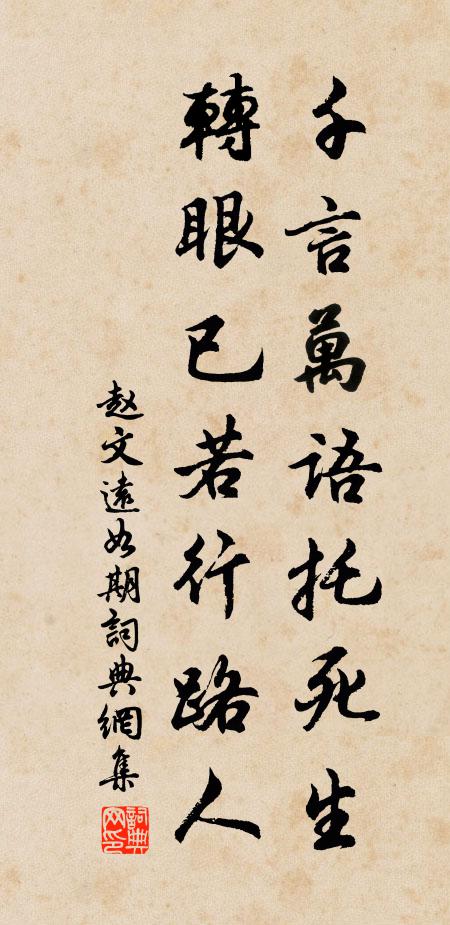 千言萬語托死生
轉眼已若行路人
赵文遠如期詞典網集
詞典網印